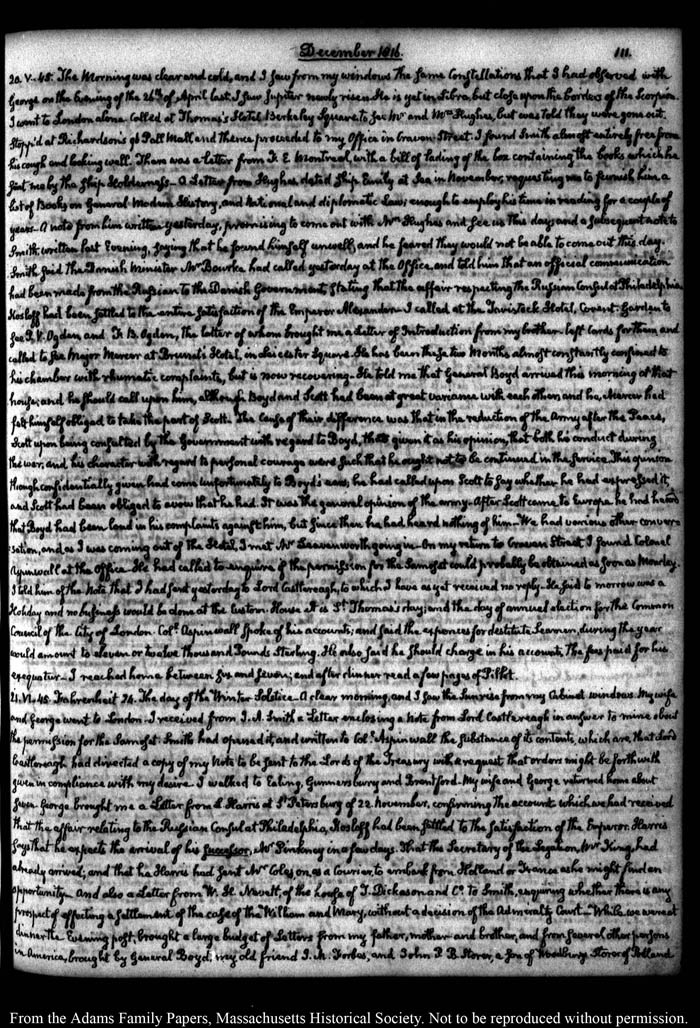 December 1816.
111.
20. V-45. The Morning was clear and cold, and I saw from my windows the same Constellations that I had observed with
George on the Evening of the 26th of April last. I saw Jupiter newly risen. He is yet in Libra, but close upon the borders of the Scorpion.
I went to London alone. Called at Thomas's Hotel Berkeley Square to see Mr and Mrs Hughes, but was told they were gone out.
Stopp'd at Richardson's 96 Pall Mall and thence proceeded to my Office in Craven Street. I found Smith almost entirely free from
his cough and looking well. There was a letter from F. E. Montreal, with a bill of lading of the box containing the books which he
sent me by the Ship Holderness - A Letter from Hughes dated Ship Emily at Sea in November, requesting me to furnish him a
list of Books on General Modern History, and National and diplomatic Law; enough to employ his time in reading for a couple of
years. A note from him written yesterday, promising to come out with Mrs Hughes and see us this day; and a subsequent note to
Smith, written last Evening, saying that he found himself unwell, and he feared they would not be able to come out this day.
Smith said the Danish Minister Mr Bourke had called yesterday at the Office, and told him that an official communication
had been made from the Russian to the Danish Government stating that the affair respecting the Russian Consul at Philadelphia
Kosloff had been settled to the entire satisfaction of the Emperor Alexander. I called at the Tavistock Hotel, Covent-Garden to
see P. V. Ogden and F. B. Ogden, the latter of whom brought me a Letter of Introduction from my brother. left cards for them and
called to see Major Mercer at Brunet's Hotel, in Leicester Square. He has been these two Months almost constantly confined to
his chamber with rhumatic complaints, but is now recovering. He told me that General Boyd arrived this morning at that
house; and he should call upon him, although Boyd and Scott had been at great variance with each other, and he, Mercer had
felt himself obliged to take the part of Scott. The cause of their difference was that in the reduction of the Army after the Peace,
Scott upon being consulted by the Government with regard to Boyd, had given it as his opinion, that both his conduct during
the war, and his character with regard to personal courage were such that he ought not to be continued in the service. This opinion
though confidentially given had come unfortunately to Boyd's ears; he had called upon Scott to say whether he had expressed it,
and Scott had been obliged to avow that he had. It was the general opinion of the army. After Scott came to Europe he had heard
that Boyd had been loud in his complaints against him, but since then he had heard nothing of him - We had various other conver-
sation, and as I was coming out of the Hotel, I met Mr Leavenworth going in. On my return to Craven Street I found Colonel
Aspinwall at the office. He had called to enquire if the permission for the Samoset could probably be obtained as soon as Monday.
I told him of the Note that I had sent yesterday to Lord Castlereagh, to which I have as yet received no reply. He said to morrow was a
Holiday and no business would be done at the Custom-House. It is St. Thomas's day; and the day of annual election for the Common
Council of the City of London. Coll. Aspinwall spoke of his accounts; and said the expences for destitute Seamen, during the year
would amount to eleven or twelve thousand Pounds Sterling. He also said he should charge in his accounts, the fees paid for his
exequatur. I reached home between six and seven; and after dinner read a few pages of Pilkt.
21. VI.45. Fahrenheit 24. The day of the Winter Solstice. A clear morning, and I saw the Sun rise from my Cabinet windows. My wife
and George went to London. I received from J. A. Smith a Letter enclosing a Note from Lord Castlereagh in answer to mine about
the permission for the Samoset. Smith had opened it, and written to Colo. Aspinwall the substance of its contents, which are, that Lord
Castlereagh had directed a copy of my Note to be sent to the Lords of the Treasury with a request that orders might be forthwith
given in compliance with my desire. I walked to Ealing, Gunnersbury and Brentford. My wife and George returned home about
seven. George brought me a Letter from L. Harris at St. Petersburg of 22. November, confirming the account which we had received
that the affair relating to the Russian Consul at Philadelphia, Kosloff had been settled to the satisfaction of the Emperor. Harris
says that he expects the arrival of his successor, Mr Pinkney in a few days. That the Secretary of the Legation, Mr King, had
already arrived; and that he Harris had sent Mr Coles on, as a Courier, to embark from Holland or France as he might find an
opportunity. And also a Letter from W. H. Nevett, of the house of T. Dickason and Co. to Smith, enquiring whether there is any
prospect of effecting a settlement of the case of the William and Mary, without a decision of the Admiralty Court. - While we were at
dinner the Evening post, brought a large budget of Letters from my father, mother and brother, and from several other persons
in America, brought by General Boyd, my old friend J. M. Forbes, and John P. B. Storer, a Son of Woodbury Storer of Portland
From the Adams Family Papers, Massachusetts Historical Society. Not to be reproduced without permission